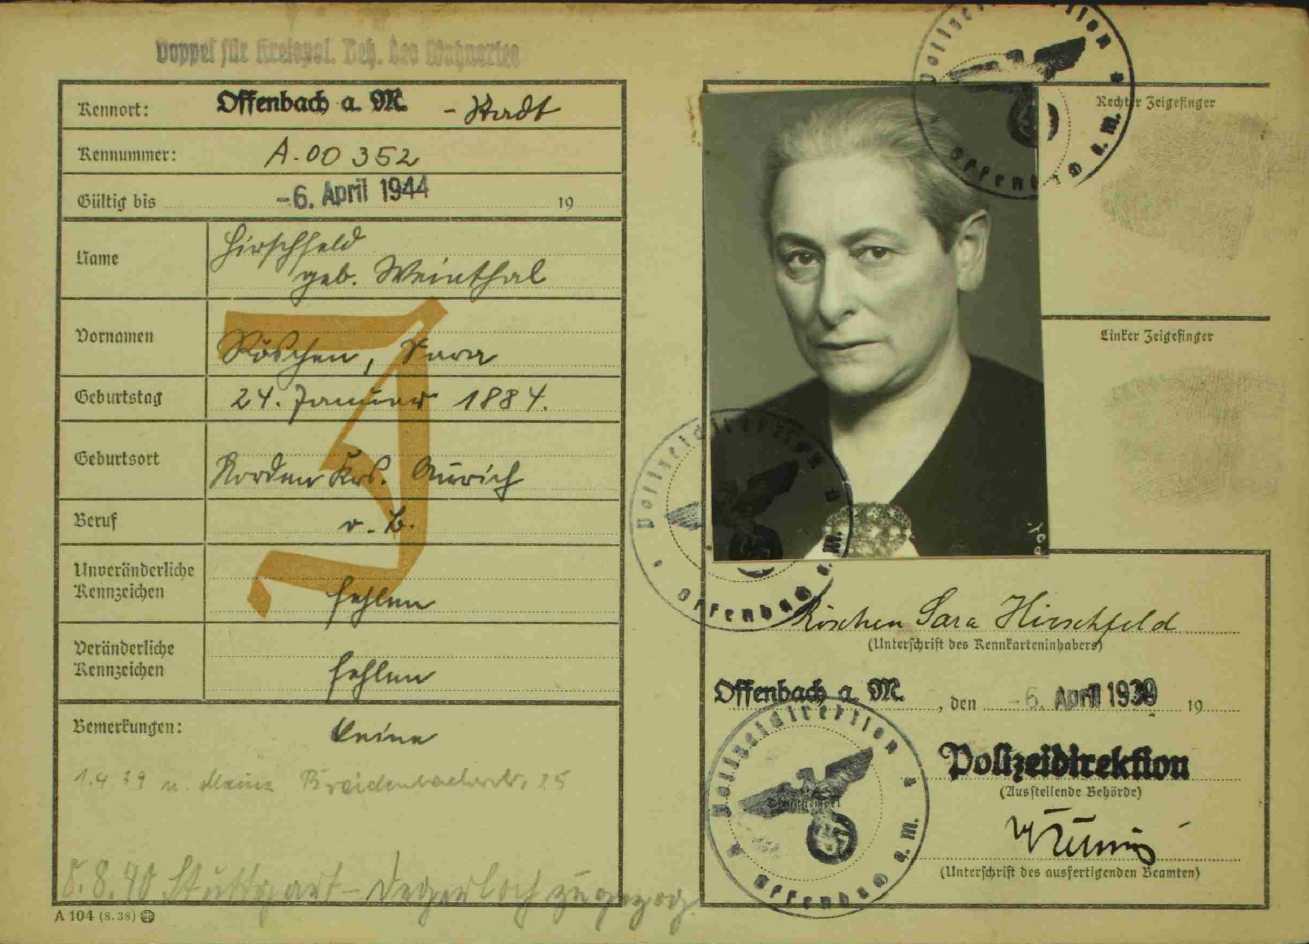 Doppel für Kreispol. Beh. des Wohnortes
Kennort: Offenbach a. M. - Stadt
Kennummer: A.00 352
Gültig bis -6. April 1944 19
Name Hirschfeld
geb. Weinthal
Vornamen Röschen, Sara
Geburtstag 24. Januar 1884.
Geburtsort Norden Krs. Aurich
Beruf o. B.
Unveränderliche
Kennzeichen fehlen
Veränderliche
Kennzeichen fehlen
Bemerkungen: keine
1.4.39 n. Mainz Breidenbacherstr. 25
5.8.40 Stuttgart-Degerloch zugezog
A 104 (8.38)
J
Polizeidirektion
Offenbach a. M.
Rechter Zeigefinger
Linker Zeigefinger
Polizeidirektion
Offenbach a. M.
Röschen Sara Hirschfeld
(Unterschrift des Kennkarteninhabers)
Offenbach a. M., den -6. April 1939 19
Polizeidirektion
(Ausstellende Behörde)
(Unterschrift des ausfertigenden Beamten)
Polizeidirektion
Offenbach a. M.